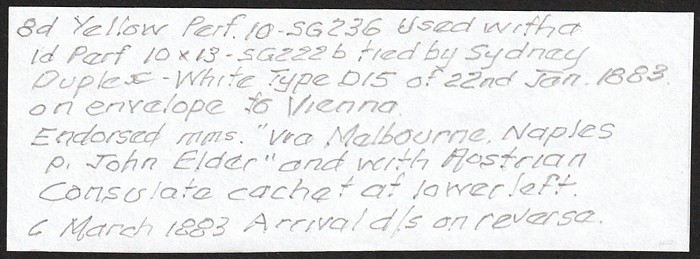 8d Yellow Perf. 10 - SG236 Used with a
1d Perf 10x13 - SG222b tied by Sydney
Duplex - White Type D15 of 22nd Jan. 1883
on envelope to Vienna.
Endorsed mms. "via Melbourne, Naples
p. John Elder" and with Aostrian
Consulate cachet at lower left.
6 March 1883 Arrival d/s on reverse.